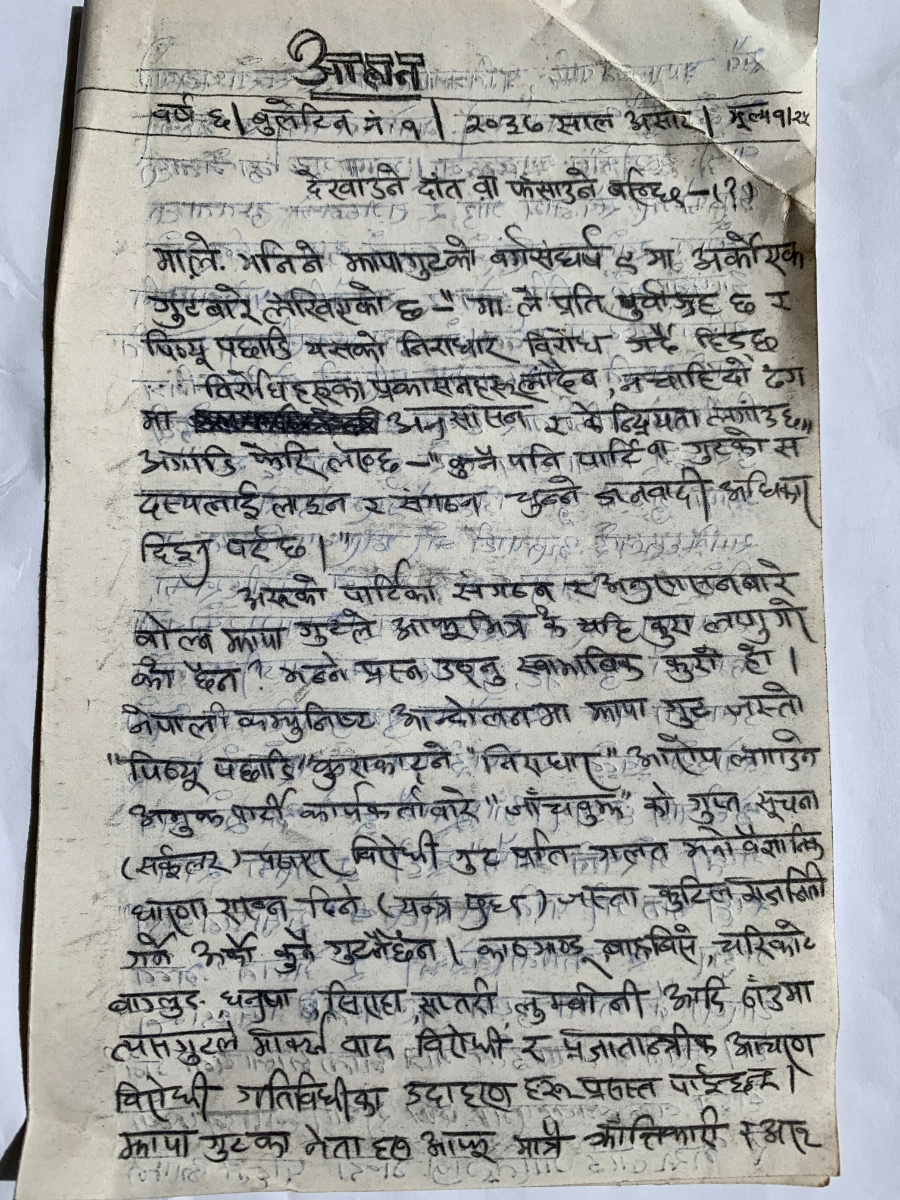 आह्वान
वर्ष ६। बुलेटिन नं. १। २०३७ साल असार। मूल्य १।२५
देखाउने दांत वा फसाउने
माले. भनिने झापागुटको वर्गसंघर्ष ए मा अर्को एक
गुटबारे लेखिएको छ -" मा ले प्रति पुर्वाग्रह छ र
पिठ्यू पछाडि यसको निराधार विरोध गर्दै हिंडछ
विरोधिहरुका प्रकासनहरू नचाहिदो ढंग
मा अनुसासन र केन्द्रियता लगाउछ"
अगाडि फेरि लेख्छ -" कुनै पनि पार्टि वा गुटको स
दस्यलाई लाइन र संगठन चुन्ने जनवादी अधिकार
दिइनु पर्दछ।"
अरूको पार्टिका संगठन र अनुशासनबारे
बोल्न झापा गुटले आफूभित्र के यहि कुरा लागु गरे
को छैन? भन्ने प्रस्न उठ्नु स्वाभाबिक कुरो हो।
नेपाली कम्युनिष्ट आन्दोलनमा झापा गुट जस्तो
"पिठ्यू पछाडि" कुराकाट्ने "निराधार" आरोप लगाउने
अमुक पार्टी कार्यकर्ताबारे "जाँचबुझ" को गुप्त सूचना
(सर्कूलर) विरोधी गुट प्रति गलत मनोवैज्ञानिक
धारणा दिने जस्ता कुटिल राजनिति
गर्ने अर्को कुनै गुट नैछैन। काठमाण्डू, बाह्रबिसे, चरिकोट
बाग्लुङ, धनुषा, सिराहा, सप्तरी, लुम्बीनी आदि ठाँउमा
त्यसगुटले मार्क्सवाद विरोधी र प्रजातान्त्रीक आचरण
विरोधी गतिविधीका उदाहरण हरू प्रसस्त पाईन्छन्।
झापा गुटका नेता हरू आफू मात्रै क्रान्तिकारी र अरू